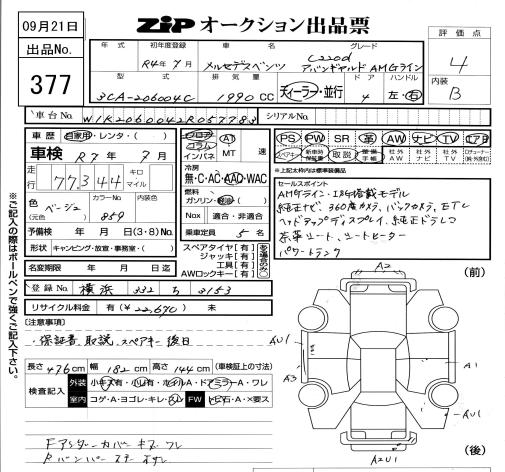 09月21日
ZIP オークション出品票
出品No.
377
年式 初年度登録 車名 グレード
R4年7月 メルセデスベンツ C220d アバンギャルド AMGライン
型式 排気量 ドア ハンドル
3CA-206004C 1990CC ディーラー・並行 4 左・右
評価点
4
内装
B
車台No. W1K2060042R057783 シリアルNo.
車歴 自家用・レンタ・( )
車検 R7年7月
走行 77,344 キロ マイル
色(元色) ベージュ カラーNo. 859 内装色
予備検 年 月 日(3・8)No.
形状 キャンピング・放宣・事務室・( )
名変期限 年 月 日迄
フロア コラム インパネ AT MT 速
冷房
無・C・AC・AAC・WAC
燃料
ガソリン・軽油( )
Nox 適合・非適合
乗車定員 5名
スペアタイヤ[有]
ジャッキ[有]
工具[有]
AWロックキー[有]
PS PW SR 革 AW ナビ TV エアB
スペアキー 新車時保証書 取説 整備手帳 社外AW 社外ナビ 社外TV
セールスポイント
AMGライン・ISG搭載モデル
純正ナビ、360度カメラ、バックカメラ、ETC
ヘッドアップディスプレイ、純正ドラレコ
茶革シート、シートヒーター
パワートランク
登録No. 横浜 332 ち 3153
リサイクル料金 有(¥22,670) 未
[注意事項]
・保証書、取説、スペアキー後日
長さ 476cm 幅 182cm 高さ 144cm (車検証上の寸法)
検査記入 外装 小キズ有・小凹有・ホイルA・ドアミラーA・ワレ
室内 コゲ・A・ヨゴレ・キレ・スレ FW トビ石・A・×要ス
Fアンダーカバーキズ ワレ
(前)
A2
AU1
A3
A1
AU1
A2U1
(後)
※ご記入の際はボールペンで強くご記入下さい。